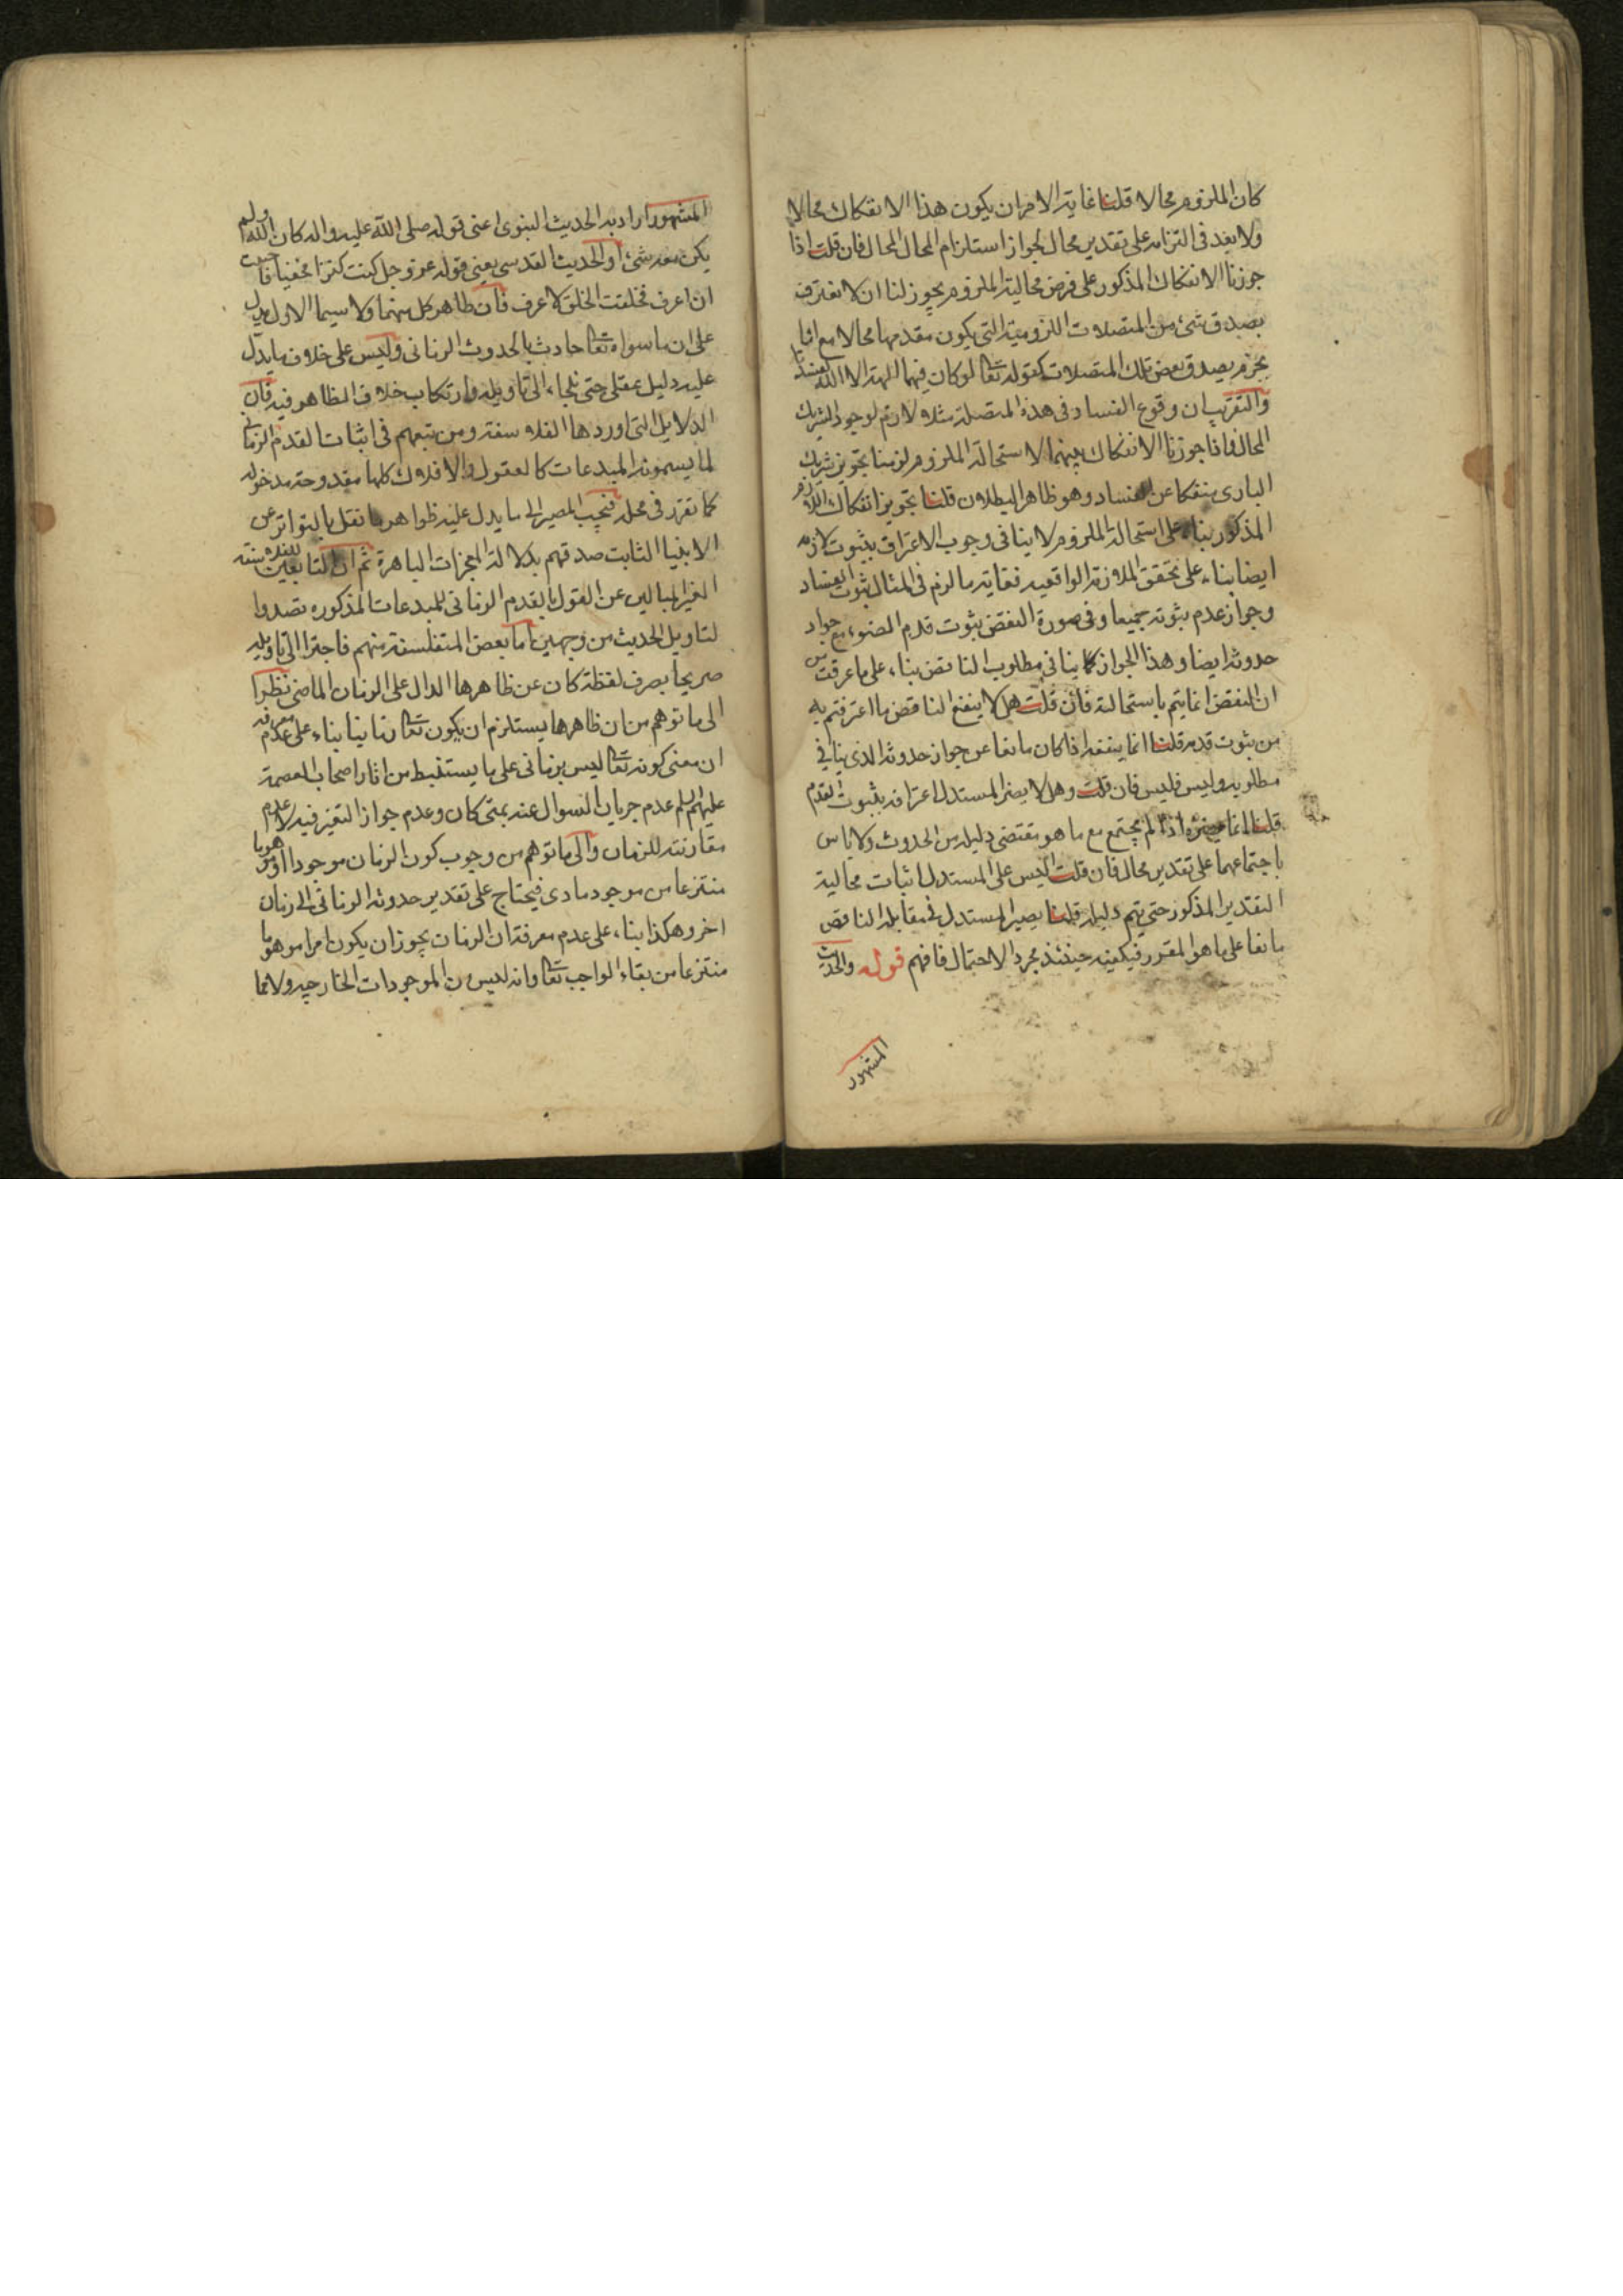 كان الملزوم محالا قلنا غاية الامر ان يكون هذا الانفكاك محالا
ولا بعد في التزامه على تقدير محال لجواز استلزام المحال المحال فان قلت اذا
جوزنا الانفكاك المذكور على فرض محالية الملزوم يجوز لنا ان لا نعترف
بصدق شئ من المتصلات اللزومية التي يكون مقدمها محالا مع انا
نجزم بصدق بعض تلك المتصلات كقوله تعالى لو كان فيهما الهة الا الله لفسدتا
والتقريب ان وقوع الفساد في هذه المتصلة مثلا لازم لوجود الشريك
المحال فاذا جوزنا الانفكاك بينهما لاستحالة الملزوم لزمنا تجويز شريك
الباري منفكا عن الفساد وهو ظاهر البطلان قلنا تجويز انفكاك اللازم
المذكور بناء على استحالة الملزوم لا ينافي وجوب الاعتراف بثبوت لازمه
ايضا بناء على تحقق الملازمة الواقعية فغاية ما لزم في المثال ثبوت الفساد
وجواز عدم ثبوته جميعا وفي صورة النقض ثبوت قدم المصنوع مع جواز
حدوثه ايضا وهذا الجواز لا ينافي مطلوب الناقض بناء على ما عرفت من
ان النقض انما يتم باستحالته فان قلت هل لا ينفع الناقض ما اعترفتم به
من ثبوت قدمه قلنا انما ينفعه اذا كان مانعا عن جواز حدوثه الذي ينافي
مطلوبه وليس فليس فان قلت وهل لا يضر المستدل اعترافه بثبوت القدم
قلنا انما يضره اذا لم يجتمع مع ما هو مقتضى دليله من الحدوث ولا باس
باجتماعهما على تقدير محال فان قلت اليس على المستدل اثبات محالية
التقدير المذكور حتى يتم دليله قلنا يصير المستدل في مقابلة الناقض
مانعا على ما هو المقرر فيكفيه حينئذ مجرد الاحتمال فافهم قوله والحديث
المشهور
المشهور اراد به الحديث النبوي اعني قوله صلى الله عليه واله كان الله ولم
يكن معه شئ او الحديث القدسي يعني قوله عز وجل كنت كنزا مخفيا فاحببت
ان اعرف فخلقت الخلق لاعرف فان ظاهر كل منهما ولا سيما الاول يدل
على ان ما سواه تعالى حادث بالحدوث الزماني وليس على خلاف ما يدل
عليه دليل عقلي حتى نلجاء الى تاويله وارتكاب خلاف الظاهر فيه فان
الدلايل التي اوردها الفلاسفة ومن تبعهم في اثبات القدم الزماني
لما يسمونه المبدعات كالعقول والافلاك كلها مقدوحة مدخولة
كما تقرر في محله فيجب المصير الى ما يدل عليه ظواهر ما نقل بالتواتر عن
الانبيا الثابت صدقهم بدلالة المعجزات الباهرة ثم ان التابعين للفلاسفة
الغير المبالين عن القول بالقدم الزماني للمبدعات المذكورة تصدوا
لتاويل الحديث من وجهين اما بعض المتفلسفة منهم فاجترا الى تاويله
صريحا بصرف لفظة كان عن ظاهرها الدال على الزمان الماضي نظرا
الى ما توهم من ان ظاهرها يستلزم ان يكون تعالى زمانيا بناء على عدم معرفة
ان معنى كونه تعالى ليس بزماني على ما يستنبط من اثار اصحاب العصمة
عليهم السلم عدم جريان السوال عنه بمتى كان وعدم جواز التغير فيه لا عدم
مقارنته للزمان والى ما توهم من وجوب كون الزمان موجودا او موهوما
منتزعا من موجود مادي فيحتاج على تقدير حدوثه الزماني الى زمان
اخر وهكذا بناء على عدم معرفة ان الزمان يجوز ان يكون امرا موهوما
منتزعا من بقاء الواجب تعالى وانه ليس من الموجودات الخارجيه ولا مما